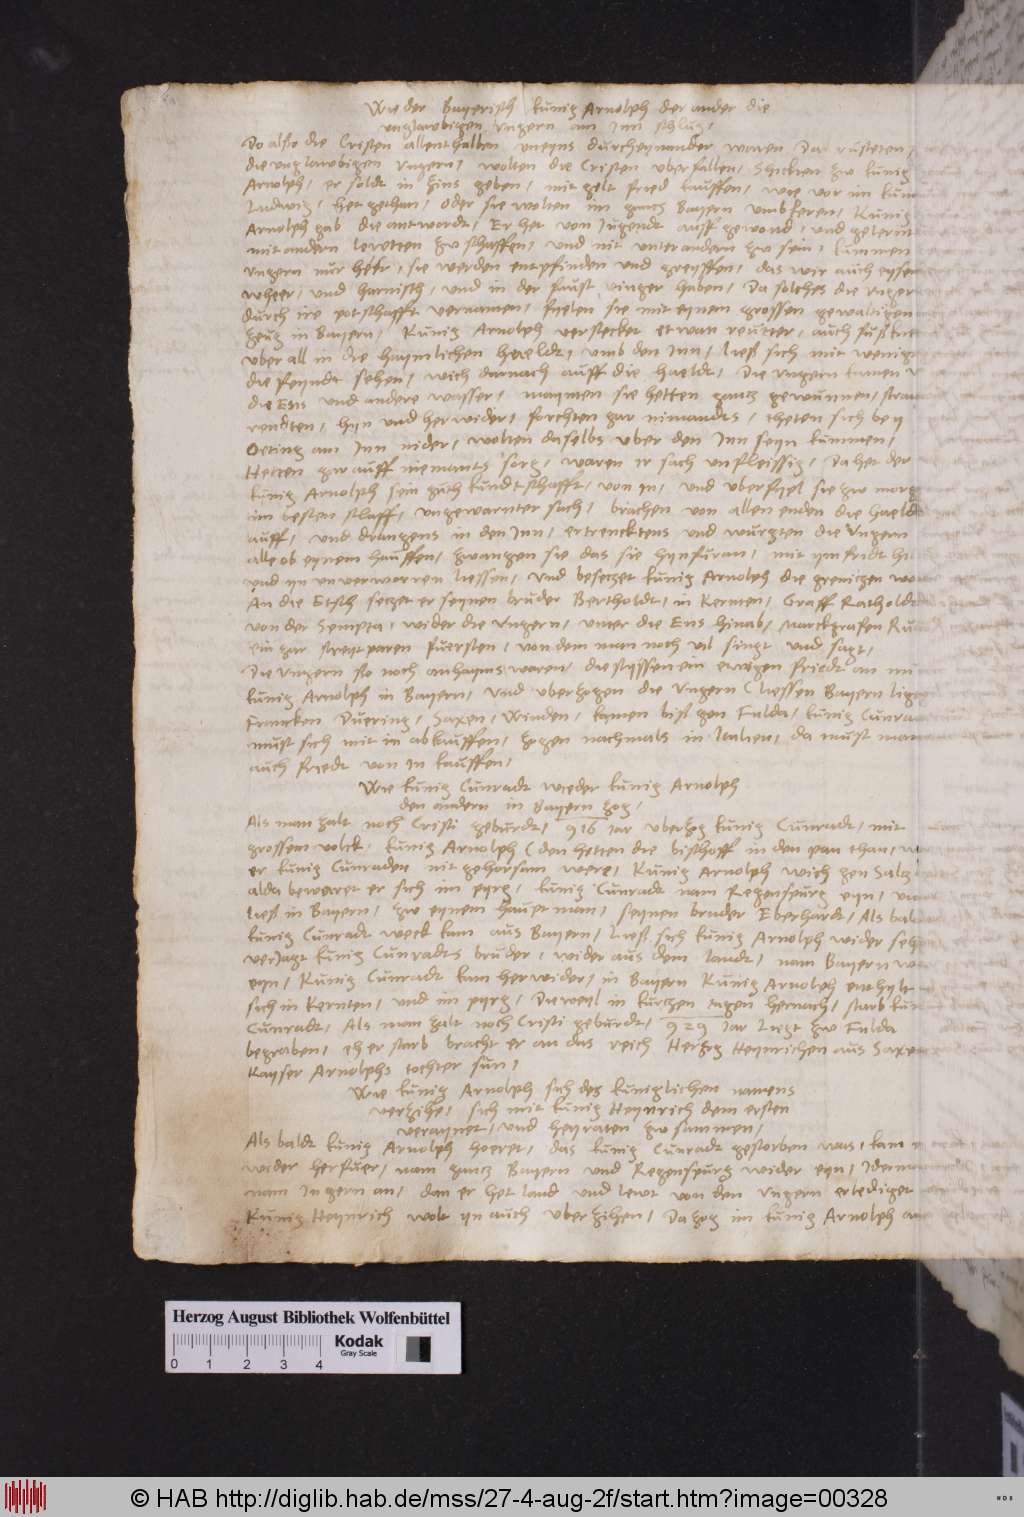 Wie der Bayerisch kunig Arnolph der ander die
unglawbigen Ungern am Inn schlug,
Do also die Cristen allenthalben uneyns durcheynander waren, Da rusteten
die unglawbigen Ungern, wolten die Cristen uberfallen, Schickten zw kunig
Arnolph, er soldt in zins geben, mit gelt fried kauffen, wie vor im kun
Ludwig, het gethan, oder sie wolten im gantz Bayern umbkeren, Kunig
Arnolph gab die antwordt, Er het von Jugendt auff gewond, und gelernt
mit andern lewtten zw schaffen, und nit unter andern zw sein, kummen
Ungern nur heer, sie werden entpfinden und greyffen, das wir auch eysen
wheer, und harnisch, und in der faust vinger haben, Da solches die Unger
durch ire potschafft vernamen, fyelen sie mit eynem grossen gewaltigen
heug in Bayern, Kunig Arnolph verstecket etwan reutter, auch fußkne
uber all in die haymlichen hoeldt, umb den Inn, ließ sich mit wenig
die feyndt sehen, wich darnach auff die haeldt, Die Ungern kamen u
die Ens und andere wasser, maynten sie hetten gantz gewunnen, strau
rendten, hyn und herwider, forchten gar nimandts, theten sich bey
Oeting am Inn nider, wolten daselbs uber den Inn seyn kummen,
Hetten gar auff niemants sorg, waren ir sach unfleissig, Da het der
kunig Arnolph sein guth kundtschafft, von in, und uberfyel sie zw morg
im besten schlaff, ungewarnter sach, brachen von allen enden die haeld
auff, und drangens in den Inn, ertrencktens und wurgten die Ungern
alle ob eynem hauffen, zwangen sie das sie hynfuran, mit yin fridt hi
und yn unverworren liessen, Und besetzet kunig Arnolph die grenitzen wo
An die Etsch setzet er seynen bruder Bertholdt, in Kernten, Graff Ratholdt
von der Sempta, wider die Ungern, unter die Ens hinab, Marckgrafen Ru
ein gar streytparen fuersten, von dem man noch vil singt und sagt,
Die Ungern so noch anhayms waren, die styssen ein ewigen friedt an mi
kunig Arnolph in Bayern, Und uberzogen die Ungern (liessen Bayern lig
Francken Duering, Saxen, Winden, kamen biß gen Fulda, kunig Cunra
must sich mit in abkauffen, zogen nachmals in Italien, da must man
auch friedt von in kauffen,
Wie kunig Cunradt wieder kunig Arnolph
den andern in Bayern zog,
Als man zalt noch Cristi geburdt, 916 iar uberzog kunig Cunradt, mit
grossem volck, kunig Arnolph (den hetten die bischoff in den pan than, w
er kunig Cunraden nit gehorsam were, Kunig Arnolph wich gen Saltz
alda bewaret er sich im pyrg, kunig Cunradt nam Regenspurg eyn, und
ließ in Bayern, zw eynem hauetman, seynen bruder Eberhardt, Als bal
kunig Cunradt weck kam aus Bayern, Ließ sich kunig Arnolph wider seh
verJagt kunig Cunradts bruder, wider aus dem landt, nam Bayern w
eyn, Kunig Cunradt kam herwider, in Bayern Kunig Arnolph enthylt
sich in Kernten, und im pyrg, Dieweyl in kurtzen tagen hernach, starb kun
Cunradt, Als man zalt noch Cristi geburdt, 929 iar Ligt zw Fulda
begraben, eh er starb bracht er an das reich Hertzog Heynrichen aus Saxe
Kayser Arnolphs tochter sun,
Wie kunig Arnolph sich des kuniglichen namens
verzihe, sich mit kunig Heynrich dem ersten
veraynet, und heyraten zw sammen,
Als baldt kunig Arnolph hoeret, das kunig Cunradt gestorben was, kam e
wider herfuer, nam gantz Bayern und Regenspurg wider eyn, Iderma
nam in gern an, dan er het land und lewt von den Ungern erlediget
Kunig Heynrich wolt yn auch uberzihen, Da zog im kunig Arnolph au
Herzog August Bibliothek Wolfenbüttel
Kodak
Gray Scale
0 1 2 3 4
© HAB http://diglib.hab.de/mss/27-4-aug-2f/start.htm?image=00328